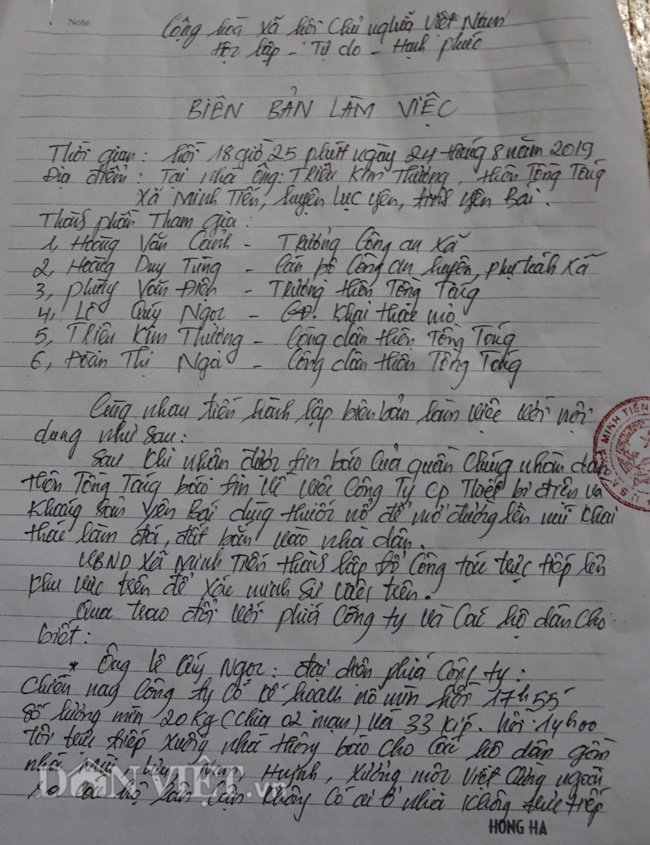 Note
Cộng hoà xã hội Chủ nghĩa Việt Nam
Độc lập - Tự do - Hạnh phúc
BIÊN BẢN LÀM VIỆC
Thời gian: hồi 18 giờ 25 phút ngày 24 tháng 8 năm 2019
Địa điểm: Tại nhà ông: Triệu Kim Thương, thôn Tông Táng
Xã Minh Tiến, huyện Lục Yên, tỉnh Yên Bái.
Thành phần Tham gia:
1, Hoàng Văn Cảnh - Trưởng Công an xã
2, Hoàng Duy Tùng - Cán bộ Công an huyện, phụ trách xã
3, Phùng Văn - Trưởng thôn Tông Táng
4, Lê Quý Ngọc - GĐ. Khai thác mỏ
5, Triệu Kim Thương - Công dân thôn Tông Táng
6, Đoàn Thị Nga - Công dân thôn Tông Táng
Cùng nhau tiến hành lập biên bản làm việc với nội
dung như sau:
Sau khi nhận được tin báo của quần chúng nhân dân
thôn Tông Táng báo tin về việc Công Ty CP Thiết bị điện và
Khoáng Sản Yên Bái dùng thuốc nổ để mở đường lên núi khai
thác làm đá, đất bắn vào nhà dân.
UBND xã Minh Tiến thành lập tổ công tác trực tiếp lên
khu vực trên để xác minh sự việc trên.
Qua trao đổi với phía Công ty và các hộ dân cho
biết:
* Ông Lê Quý Ngọc: đại diện phía Công ty:
Chiều nay Công ty có kế hoạch nổ mìn hồi 17h55
số lượng mìn 20kg (chia 02 và 33 kíp. hồi 14h00
tôi trực tiếp xuống nhà thông báo cho các hộ dân gồm
nhà Nam, Huỳnh, xưởng Việt Cùng
hộ lân cận không có ai ở nhà không trực tiếp
DÂNVIỆT.vn
MINH TIẾN
HONG HA